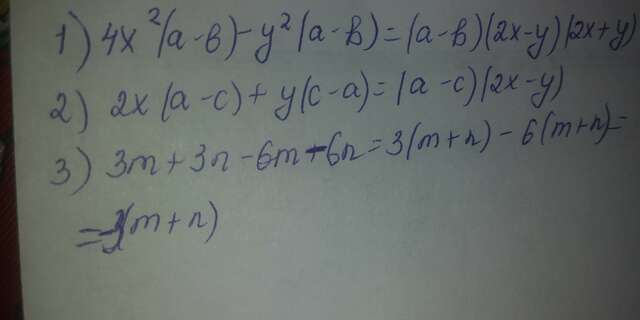 1) 4x²(a-в)-y²(a-в)=(a-в)(2x-y)(2x+y)
2) 2x(a-c)+y(c-a)=(a-c)(2x-y)
3) 3m+3n-6m-6n=3(m+n)-6(m+n)=
=-3(m+n)